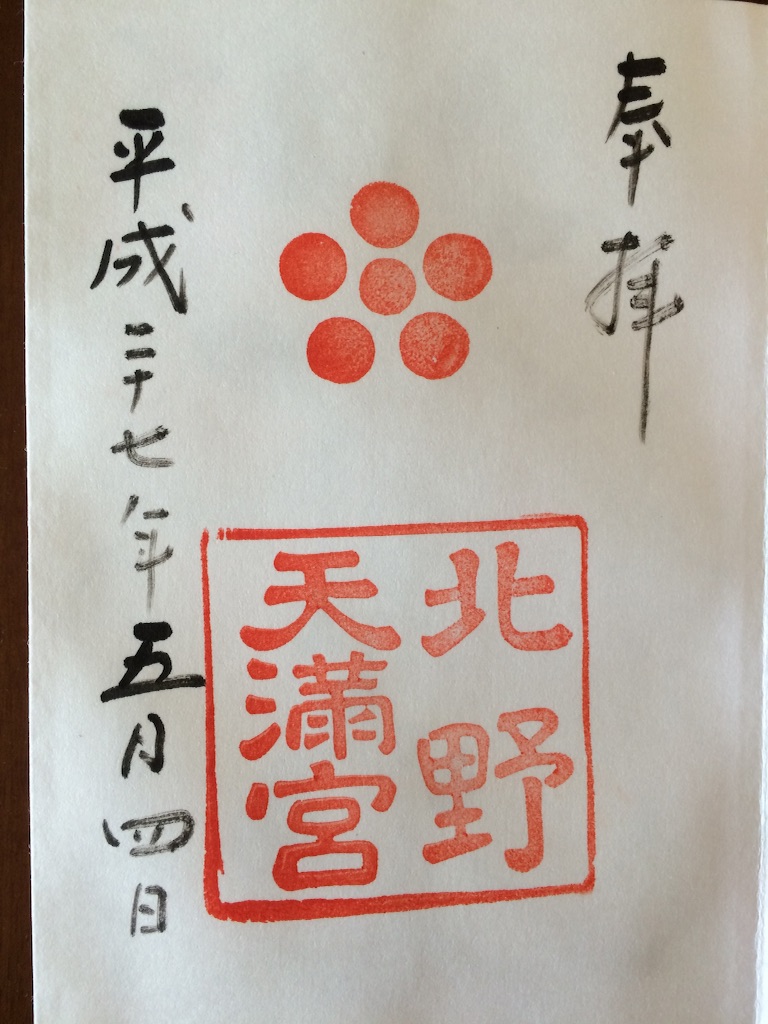 奉拝
北野
天満宮
平成二十七年五月四日